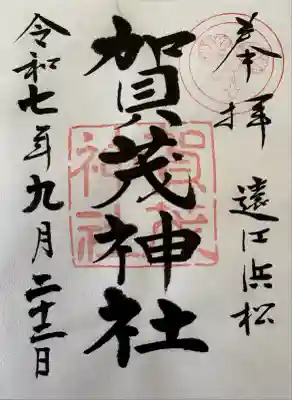 奉拝 遠江浜松
賀茂神社
令和七年九月二十二日
賀茂
神社